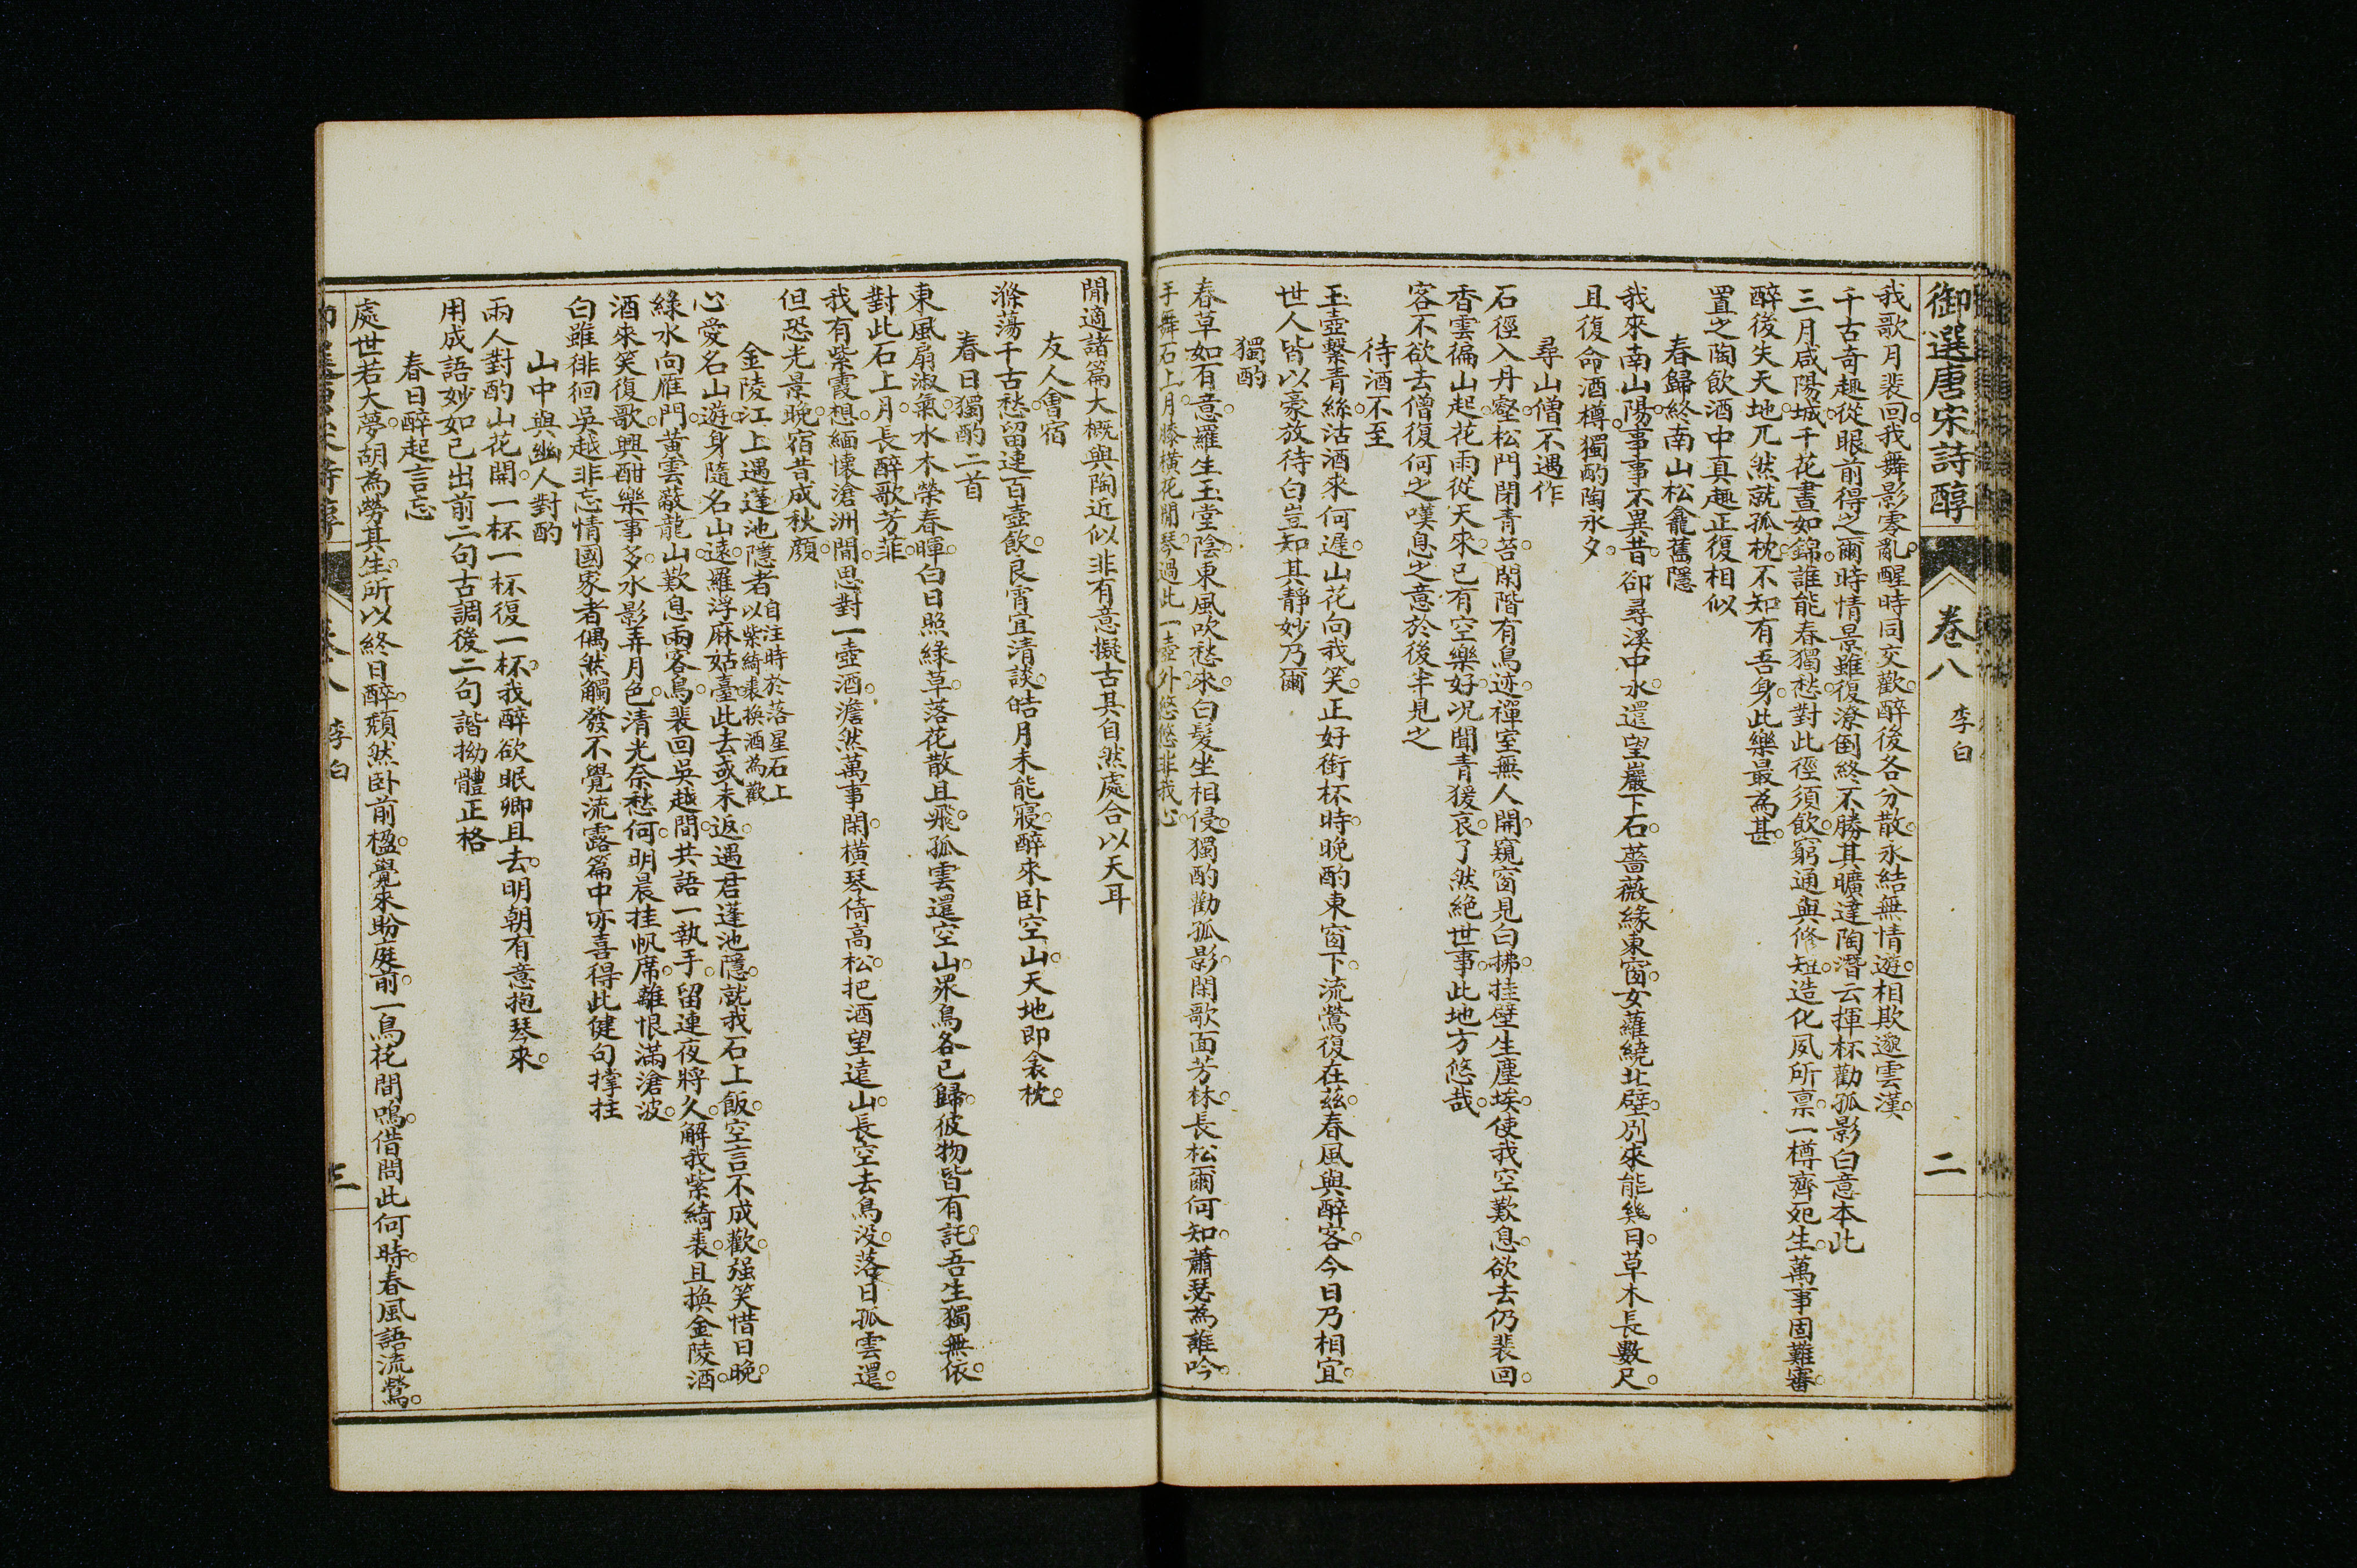 御選唐宋詩醇
卷八
李白
二
我歌月裴回我舞影零亂醒時同交歡醉後各分散永結無情遊相欺邈雲漢
千古奇趣從眼前得之爾時情景雖復潦倒終不勝其曠達陶潛云揮杯勸孤影白意本此
三月咸陽城千花晝如錦誰能春獨愁對此徑須飲窮通與修短造化夙所禀一樽齊死生萬事固難審
醉後失天地兀然就孤枕不知有吾身此樂最為甚
置之陶飲酒中真趣正復相似
春歸終南山松龕舊隱
我來南山陽事事不異昔卻尋溪中水還望巖下石薔薇緣東窗女蘿繞北壁別來能幾日草木長數尺
且復命酒樽獨酌陶永夕
尋山僧不遇作
石徑入丹壑松門閉青苔閑階有鳥迹禪室無人開窺窗見白拂挂壁生塵埃使我空歎息欲去仍裴回
香雲徧山起花雨從天來已有空樂好況聞青猨哀了然絕世事此地方悠哉
客不欲去僧復何之嘆息之意於後半見之
待酒不至
玉壺繫青絲沽酒來何遲山花向我笑正好銜杯時晚酌東窗下流鶯復在茲春風與醉客今日乃相宜
世人皆以豪放待白豈知其靜妙乃爾
獨酌
春草如有意羅生玉堂陰東風吹愁來白髮坐相侵獨酌勸孤影閑歌面芳林長松爾何知蕭瑟為誰吟
手舞石上月膝橫花間琴過此一壺外悠悠非我心
閒適諸篇大概與陶近似非有意擬古其自然處合以天耳
友人會宿
滌蕩千古愁留連百壺飲良宵宜清談皓月未能寢醉來卧空山天地即衾枕
春日獨酌二首
東風扇淑氣水木榮春暉白日照綠草落花散且飛孤雲還空山眾鳥各已歸彼物皆有託吾生獨無依
對此石上月長醉歌芳菲
我有紫霞想緬懷滄洲間思對一壺酒澹然萬事閑橫琴倚高松把酒望遠山長空去鳥沒落日孤雲還
但恐光景晚宿昔成秋顏
金陵江上遇蓬池隱者自注時於落星石上以紫綺裘換酒為歡
心愛名山遊身隨名山遠羅浮麻姑臺此去或未返遇君蓬池隱就我石上飯空言不成歡强笑惜日晚
綠水向雁門黃雲蔽龍山歎息兩客鳥裴回吳越間共語一執手留連夜將久解我紫綺裘且換金陵酒
酒來笑復歌興酣樂事多水影弄月色清光奈愁何明晨挂帆席離恨滿滄波
白雖徘徊吳越非忘情國家者偶然觸發不覺流露篇中亦喜得此健句撑拄
山中與幽人對酌
兩人對酌山花開一杯一杯復一杯我醉欲眠卿且去明朝有意抱琴來
用成語妙如己出前二句古調後二句諧拗體正格
春日醉起言志
處世若大夢胡為勞其生所以終日醉頹然卧前楹覺來盼庭前一鳥花間鳴借問此何時春風語流鶯
李白
三